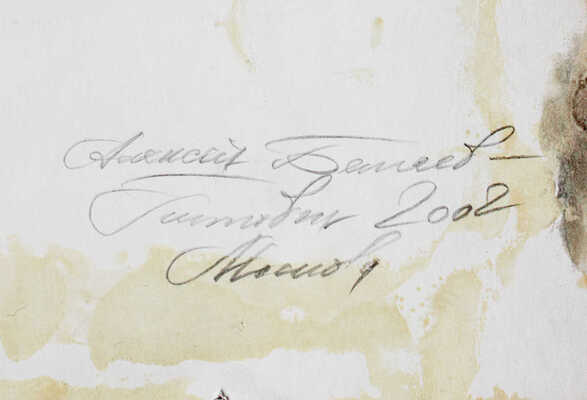 Алексей Беляев-
Гинтовт 2002
Москва